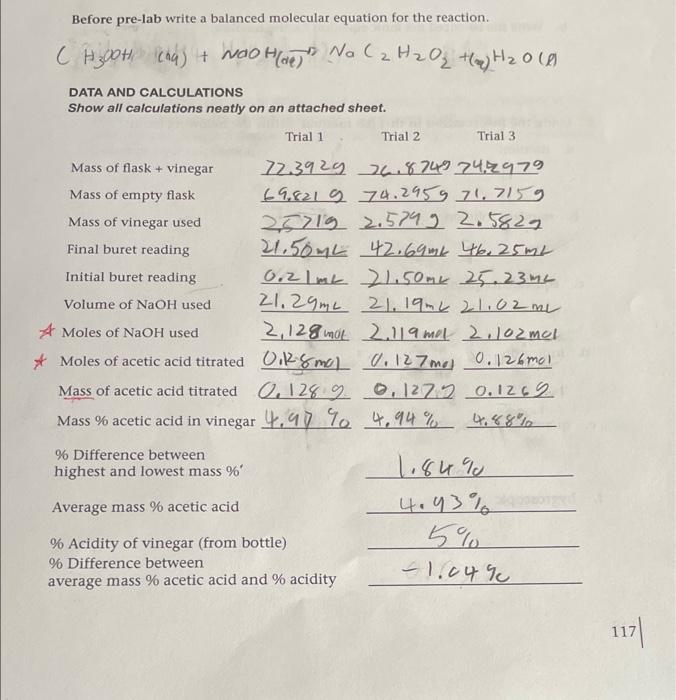 Before pre-lab write a balanced molecular equation for the reaction.
CH3OOH (aq) + NaOH(aq) → NaC2H2O2 +(aq) H2O(l)
DATA AND CALCULATIONS
Show all calculations neatly on an attached sheet.
Trial 1 Trial 2 Trial 3
Mass of flask + vinegar 72.392g 76.874g 74.2979
Mass of empty flask 69.821 g 74.295g 71.715g
Mass of vinegar used 2.571g 2.579g 2.582g
Final buret reading 21.50mL 42.69mL 46.25mL
Initial buret reading 0.21mL 21.50mL 25.23mL
Volume of NaOH used 21.29mL 21.19mL 21.02mL
☆ Moles of NaOH used 2,128mol 2.119mol 2.102mol
☆ Moles of acetic acid titrated 0.128mol 0.127mol 0.126mol
Mass of acetic acid titrated 0.128g 0.127g 0.126g
Mass % acetic acid in vinegar 4.97% 4.94% 4.88%
% Difference between
highest and lowest mass %' 1.84%
Average mass % acetic acid 4.93%
% Acidity of vinegar (from bottle) 5%
% Difference between
average mass % acetic acid and % acidity -1.04%
117